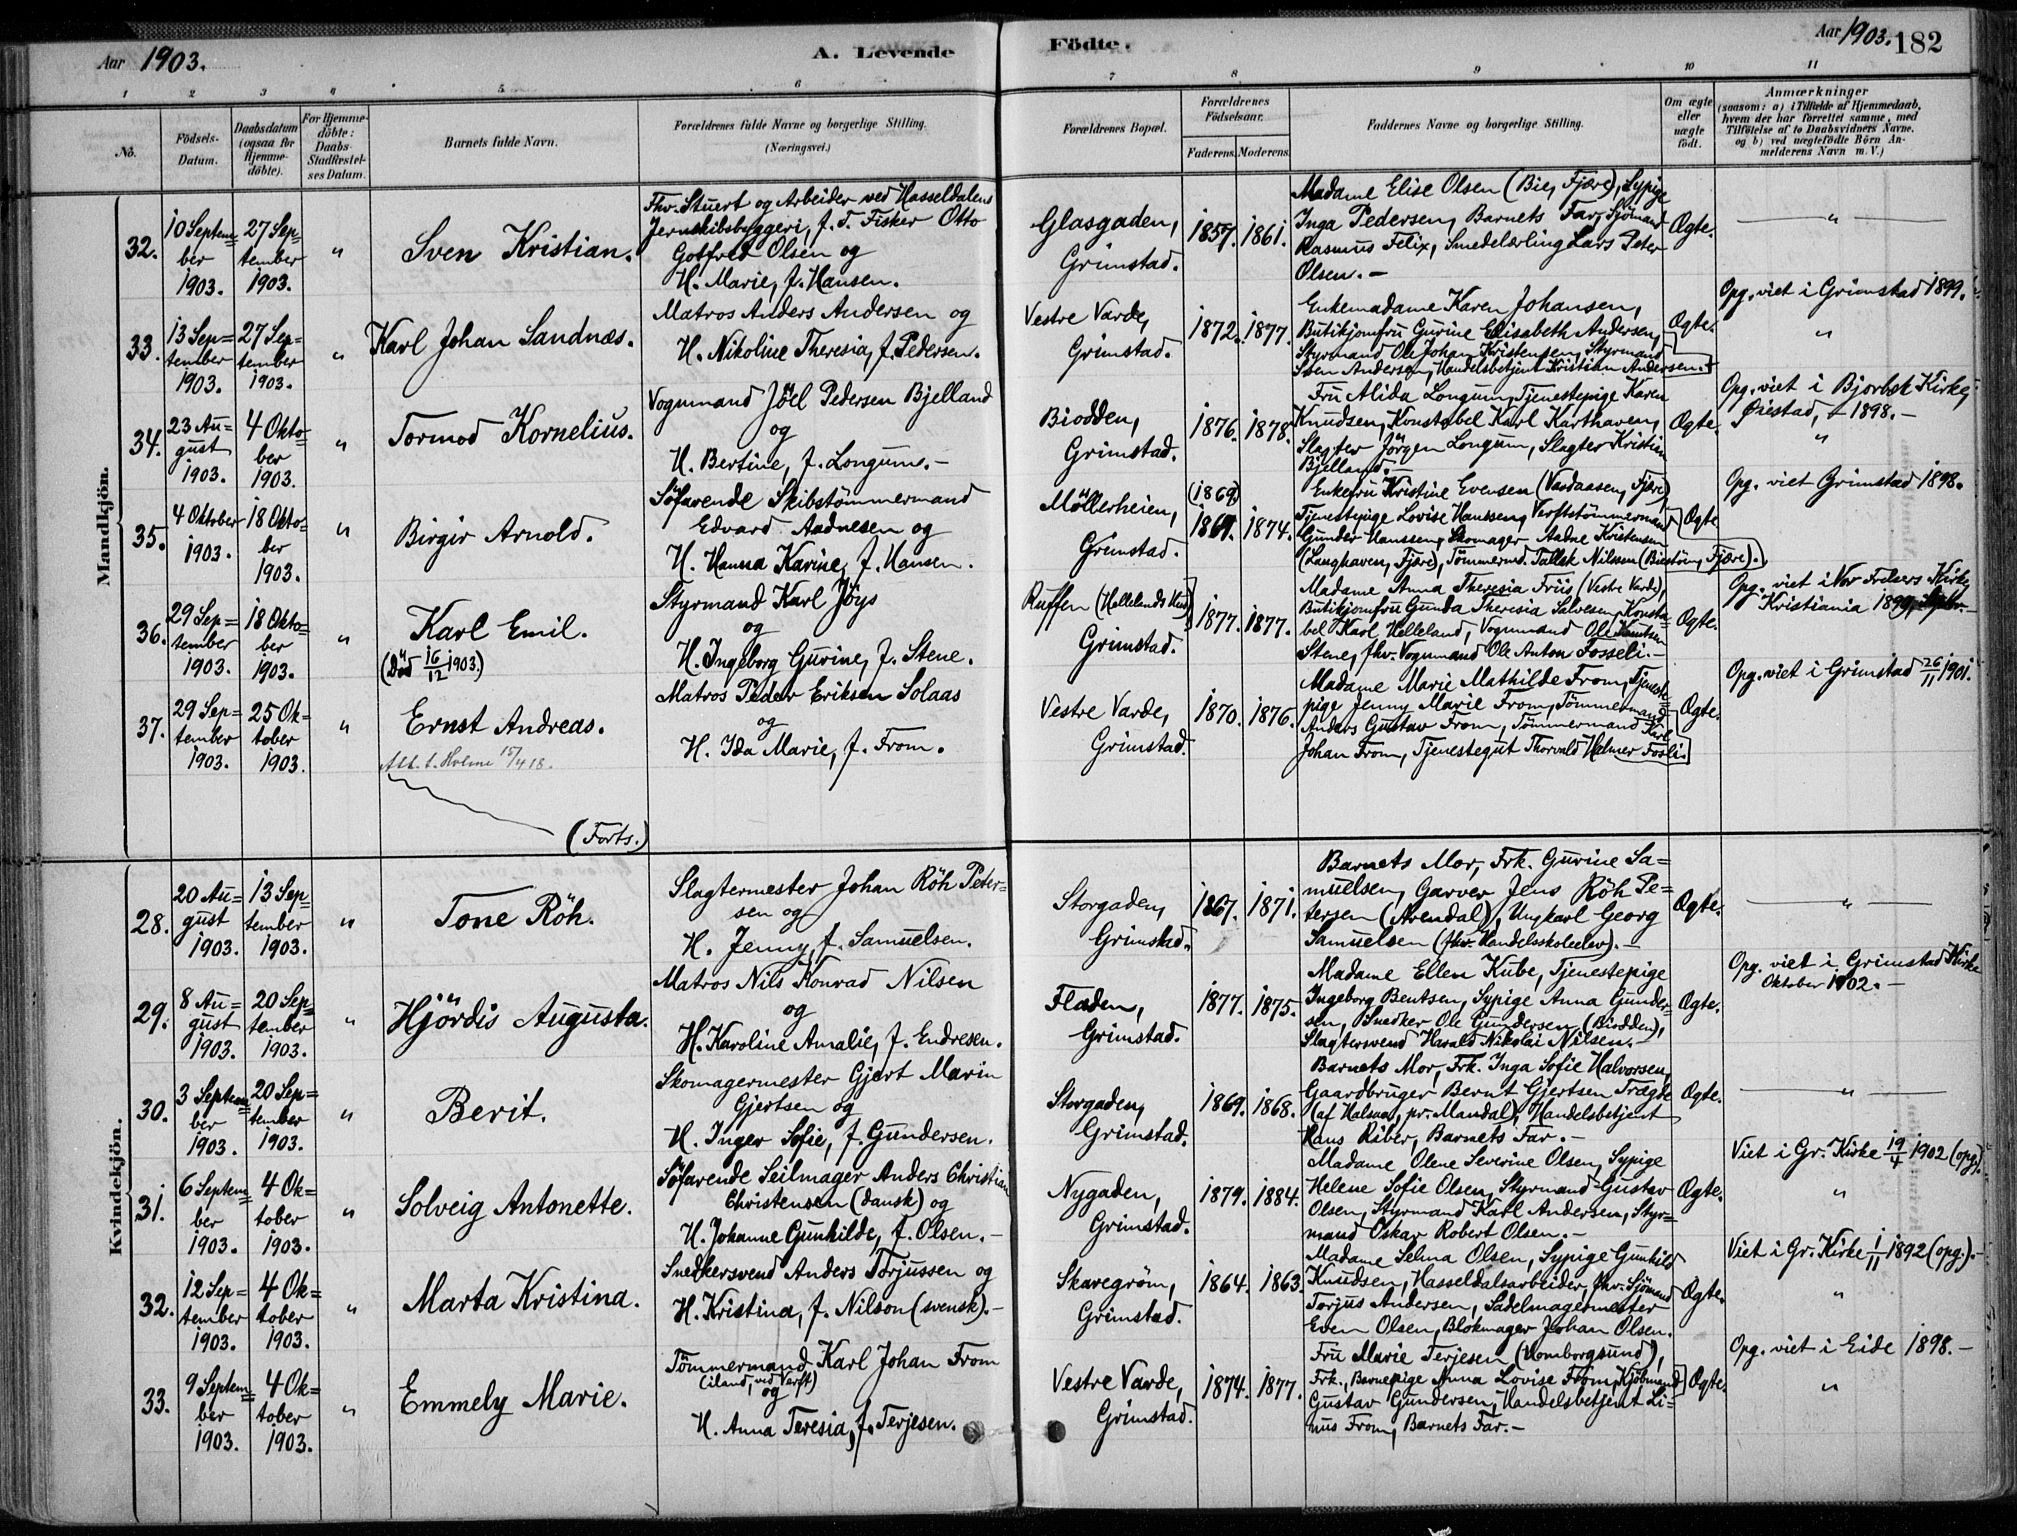 Aar 1903.
A. Levende
Födte.
Aar 1903.
182
1 2 3 4 5 6 7 8 9 10 11
No.
Födsels-
Datum.
Daabsdatum
(ogsaa for
Hjemme-
döbte).
For Hjemme-
döbte:
Daabs-
Stadfæstel-
ses Datum.
Barnets fulde Navn.
Forældrenes fulde Navne og borgerlige Stilling.
(Næringsvei.)
Forældrenes Bopæl.
Forældrenes
Födselsaar.
Faderens.
Moderens.
Faddernes Navne og borgerlige Stilling.
Om ægte
eller
uægte
født.
Anmærkninger
(saasom: a) i Tilfælde af Hjemmedaab,
hvem der har forrettet samme, med
Tilföielse af to Daabsvidners Navne,
og b) ved uægtefödte Börn An-
melderens Navn m. V.)
Mandkjön.
32.
10 Septem=
ber
1903.
27 Sep=
tember
1903.
"
Sven Kristian.
Fhv. Stuert og Arbeider ved Hasseldalens
Jernskibsbyggeri, f. T. Fisker Otto
Gotfred Olsen og
H. Marie, f. Hansen.
Glasgaden,
Grimstad.
1857.
1861.
Madame Elise Olsen (Bie, Fjære), Sypige
Inga Pedersen, Barnets Far, Sjömand
Rasmus Felix, Smedelærling Lars Peter
Olsen. –
Ægte.
"
33.
13 Sep=
tember
1903.
27 Sep=
tember
1903.
"
Karl Johan Sandnæs.
Matros Anders Andersen og
H. Nikoline Theresia, f. Pedersen.
Vestre Varde,
Grimstad.
1872.
1877.
Enkemadame Karen Johansen,
Butikjomfru Gurine Elisabeth Andersen,
Styrmand Ole Johan Kristensen, Styrmand
Sven Andersen, Handelsbetjent Kristian Andersen.
Ægte.
Opg. viet i Grimstad 1899.
"
34.
23 Au=
gust
1903.
4 Okto=
ber
1903.
"
Tormod Kornelius.
Vognmand Jöel Pedersen Bjelland
og
H. Bertine, f. Longum. –
Biodden,
Grimstad.
1876.
1878.
Fru Alida Longum, Tjenestepige Karen
Knudsen, Konstabel Karl Karthaven,
Slagter Jörgen Longum, Slagter Kristian
Bjelland. –
Ægte.
Opg. viet i Bjorbek Kirke,
Øiestad, – 1898. –
"
35.
4 Oktober
1903.
18 Okto=
ber
1903.
"
Birgir Arnold.
Söfarende Skibstömmermand
Edvard Aadnesen og
H. Hanna Karine, f. Hansen.
Möllerheien,
Grimstad.
(1869)
1869.
1874.
Enkefru Kristine Evensen (Vardaasen, Fjære),
Tjenestepige Lovise Hanssen, Verftstömmermand
Gunder Hanssen, Skomager Aadne Kristensen
(Langhaven, Fjære), Tömmermd. Tallak Nilssen (Biestöen, Fjære).
Ægte
Opg. viet Grimstad 1898.
36.
29 Sep=
tember
1903.
18 Okto=
ber
1903.
"
Karl Emil.
(Död 16/12 1903.)
Styrmand Karl Jöys
og
H. Ingeborg Gurine, f. Stene.
Ruffen (Hellelands Hus),
Grimstad.
1877.
1877.
Madame Anna Theresia Friis (Vestre Varde),
Butikjomfru Gunda Theresia Salvesen, Konsta=
bel Karl Helleland, Vognmand Ole Knutsen
Stene, fhv. Vognmand Ole Anton Fosseli. –
Ægte.
Opg. viet i Vor Frelsers Kirke
Kristiania 1899,
37.
29 Sep=
tember
1903.
25 Ok=
tober
1903.
"
Ernst Andreas.
Att. t. Holme 15/4 18.
Matros Peder Eriksen Solaas
og
H. Ida Marie, f. From.
Vestre Varde,
Grimstad.
1870.
1876.
Madame Marie Mathilde From, Tjeneste=
pige Jenny Marie From, Tömmermand
Anders Gustav From, Tömmermand Karl
Johan From, Tjenestegut Thorvald Helmer Fosli.
Ægte.
Opg. viet i Grimstad 26/11 1901.
(Forts.)
Kvindekjön.
28.
20 Au=
gust
1903.
13 Sep=
tember
1903.
"
Tone Röh.
Slagtermester Johan Röh Peter=
sen og
H. Jenny, f. Samuelsen.
Storgaden,
Grimstad.
1867.
1871.
Barnets Mor, Frk. Gurine Sa=
muelsen, Garver Jens Röh Pe=
tersen (Arendal), Ungkarl Georg
Samuelsen (fhv. Handelsskoleelev). –
Ægte.
"
29.
8 Au=
gust
1903.
20 Sep=
tember
1903.
"
Hjördis Augusta.
Matros Nils Konrad Nilsen
og
H. Karoline Amalie, f. Endresen.
Fladen,
Grimstad.
1877.
1875.
Madame Ellen Kube, Tjenestepige
Ingeborg Bentsen, Sypige Anna Gunder=
sen, Snedker Ole Gundersen (Biodden),
Slagtersvend Harald Nikolai Nilsen.
Ægte.
Opg. viet i Grimstad Kirke
Oktober 1902. –
30.
3 Septem=
ber
1903.
20 Sep=
tember
1903.
"
Berit.
Skomagermester Gjert Marin
Gjertsen og
H. Inger Sofie, f. Gundersen.
Storgaden,
Grimstad.
1869.
1868.
Barnets Mor, Frk. Inga Sofie Halvorsen,
Gaardbruger Bernt Gjertsen Trægde
(af Halsaa, pr. Mandal), Handelsbetjent
Hans Riber, Barnets Far. –
Ægte.
"
31.
6 Septem=
ber
1903.
4 Ok=
tober
1903.
"
Solveig Antonette.
Söfarende Seilmager Anders Christian
Christensen (dansk) og
H. Johanne Gunhilde, f. Olsen. –
Nygaden,
Grimstad.
1879.
1884.
Madame Olene Severine Olsen, Sypige
Helene Sofie Olsen, Styrmand Gustav
Olsen, Styrmand Karl Andersen, Styr=
mand Oskar Robert Olsen. –
Ægte.
Viet i Gr. Kirke 19/4 1902 (opg.).
"
32.
12 Sep=
tember
1903.
4 Ok=
tober
1903.
"
Marta Kristina.
Snedkersvend Anders Torjussen og
H. Kristina, f. Nilson (svensk). –
Skaregrøm,
Grimstad.
1864.
1863.
Madame Selma Olsen, Sypige Gunhild
Knudsen, Hasseldalsarbeider, fhv. Sjömand
Torjus Andersen, Sadelmagermester
Even Olsen, Blokmager Johan Olsen.
Ægte.
Viet i Gr. Kirke 1/11 1892 (opg.). –
"
33.
9 Septem=
ber
1903.
4 Ok=
tober
1903.
"
Emmely Marie.
Tömmermand Karl Johan From
(iland, ved Verft)
og
H. Anna Teresia, f. Terjesen.
Vestre Varde,
Grimstad.
1874.
1877.
Fru Marie Terjesen (Homborgsund),
Frk., Barnepige Anna Lovise From, Kjöbmand
Gustav Gundersen, Handelsbetjent Li=
nus From, Barnets Far. –
Ægte.
Opg. viet i Eide 1898. –
"